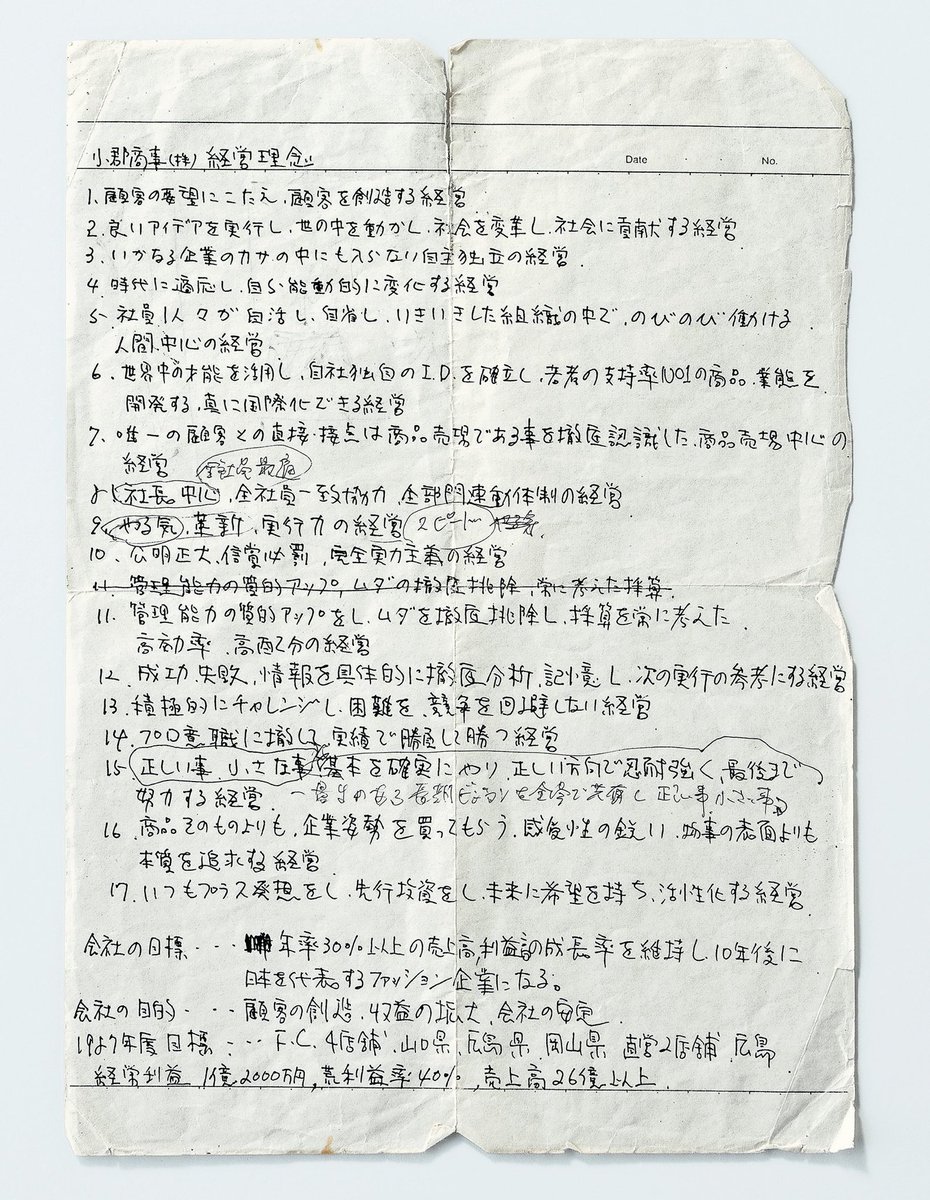 小郡商事(株) 経営理念
Date ・ ・ No.
1. 顧客の要望にこたえ、顧客を創造する経営
2. 良いアイデアを実行し、世の中を動かし、社会を変革し、社会に貢献する経営
3. いかなる企業のカサの中にも入らない自主独立の経営
4. 時代に適応し、自ら能動的に変化する経営
5. 社員1人々が自活し、自省し、いきいきした組織の中で、のびのび働ける
人間中心の経営
6. 世界中の才能を活用し、自社独自のI.D.を確立し、若者の支持率NO1の商品、業態を
開発する、真に国際化できる経営
7. 唯一の顧客との直接接点は商品売場である事を徹底認識した、商品売場中心の
経営
8. 社長中心、全社員一致協力、全部門連動体制の経営
9. やる気、革新、実行力の経営 スピード
10. 公明正大、信賞必罰、完全実力主義の経営
11. 管理能力の質的アップ、ムダの徹底排除、常に考えた採算
11. 管理能力の質的アップをし、ムダを徹底排除し、採算を常に考えた
高効率、高配分の経営
12. 成功、失敗、情報を具体的に徹底分析、記憶し、次の実行の参考にする経営
13. 積極的にチャレンジし、困難を、競争を回避しない経営
14. プロ意職に撤して、実績で勝負して勝つ経営
15. 正しい事、小さな事、基本を確実にやり、正しい方向で忍耐強く、最後まで
努力する経営 一貫性のある長期ビジョンを全体で共有し 正しい事 小さな事
16. 商品そのものよりも、企業姿勢を買ってもらう、感受性の鋭い、物事の表面よりも
本質を追求する経営
17. いつもプラス発想をし、先行投資をし、未来に希望を持ち、活性化する経営
会社の目標・・・ 年率30%以上の売上高、利益の成長率を維持し、10年後に
日本を代表するファッション企業になる。
会社の目的・・・ 顧客の創造、収益の拡大、会社の安定
1987年度目標・・・ F.C. 4店舗、山口県、広島県、岡山県 直営2店舗、広島
経営利益 1億2000万円、荒利益率40%、売上高26億以上